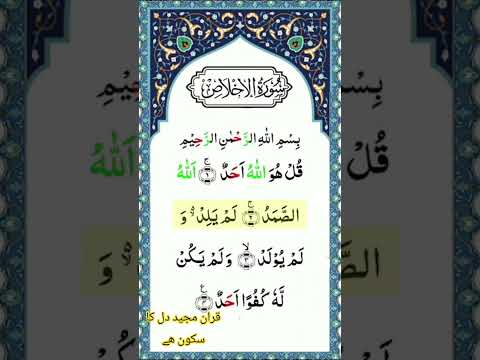 سُوْرَةُ الْاِخْلَاصِ
بِسْمِ اللهِ الرَّحْمٰنِ الرَّحِيْمِ
قُلْ هُوَ اللهُ اَحَدٌ ۚ﴿۱﴾ اَللهُ
الصَّمَدُ ۚ﴿۲﴾ لَمْ يَلِدْ ۙ۬ وَ
لَمْ يُوْلَدْ ۙ﴿۳﴾ وَ لَمْ يَكُنْ
لَّهٗ كُفُوًا اَحَدٌ ﴿۴﴾
قرآن مجید دل کا
سکون ھے